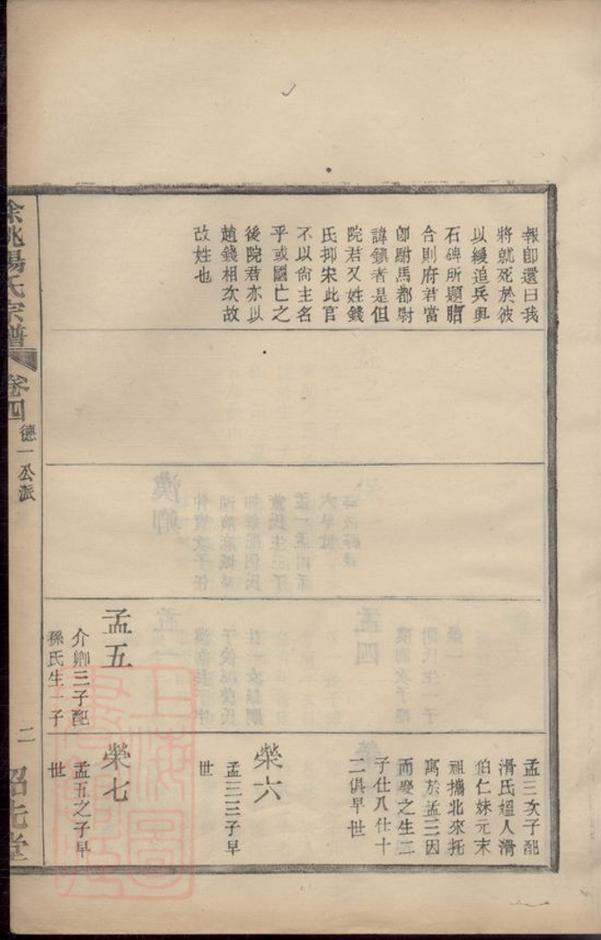 報卽還曰我
將就死於彼
以緩追兵與
石碑所題脗
合則府君當
卽駙馬都尉
諱鎮者是但
院君又姓錢
氏抑宋此官
不以尙主名
乎或國亡之
後院君亦以
趙錢相次故
改姓也
孟五
介卿三子配
孫氏生一子
孟三次子配
滑氏媼人滑
伯仁妹元末
祖攜北來托
寓於孟三因
而娶之生二
子仕八仕十
二俱早世
榮六
孟三三子早
世
榮七
孟五之子早
世
餘姚楊氏宗譜
卷四
德一公派
二